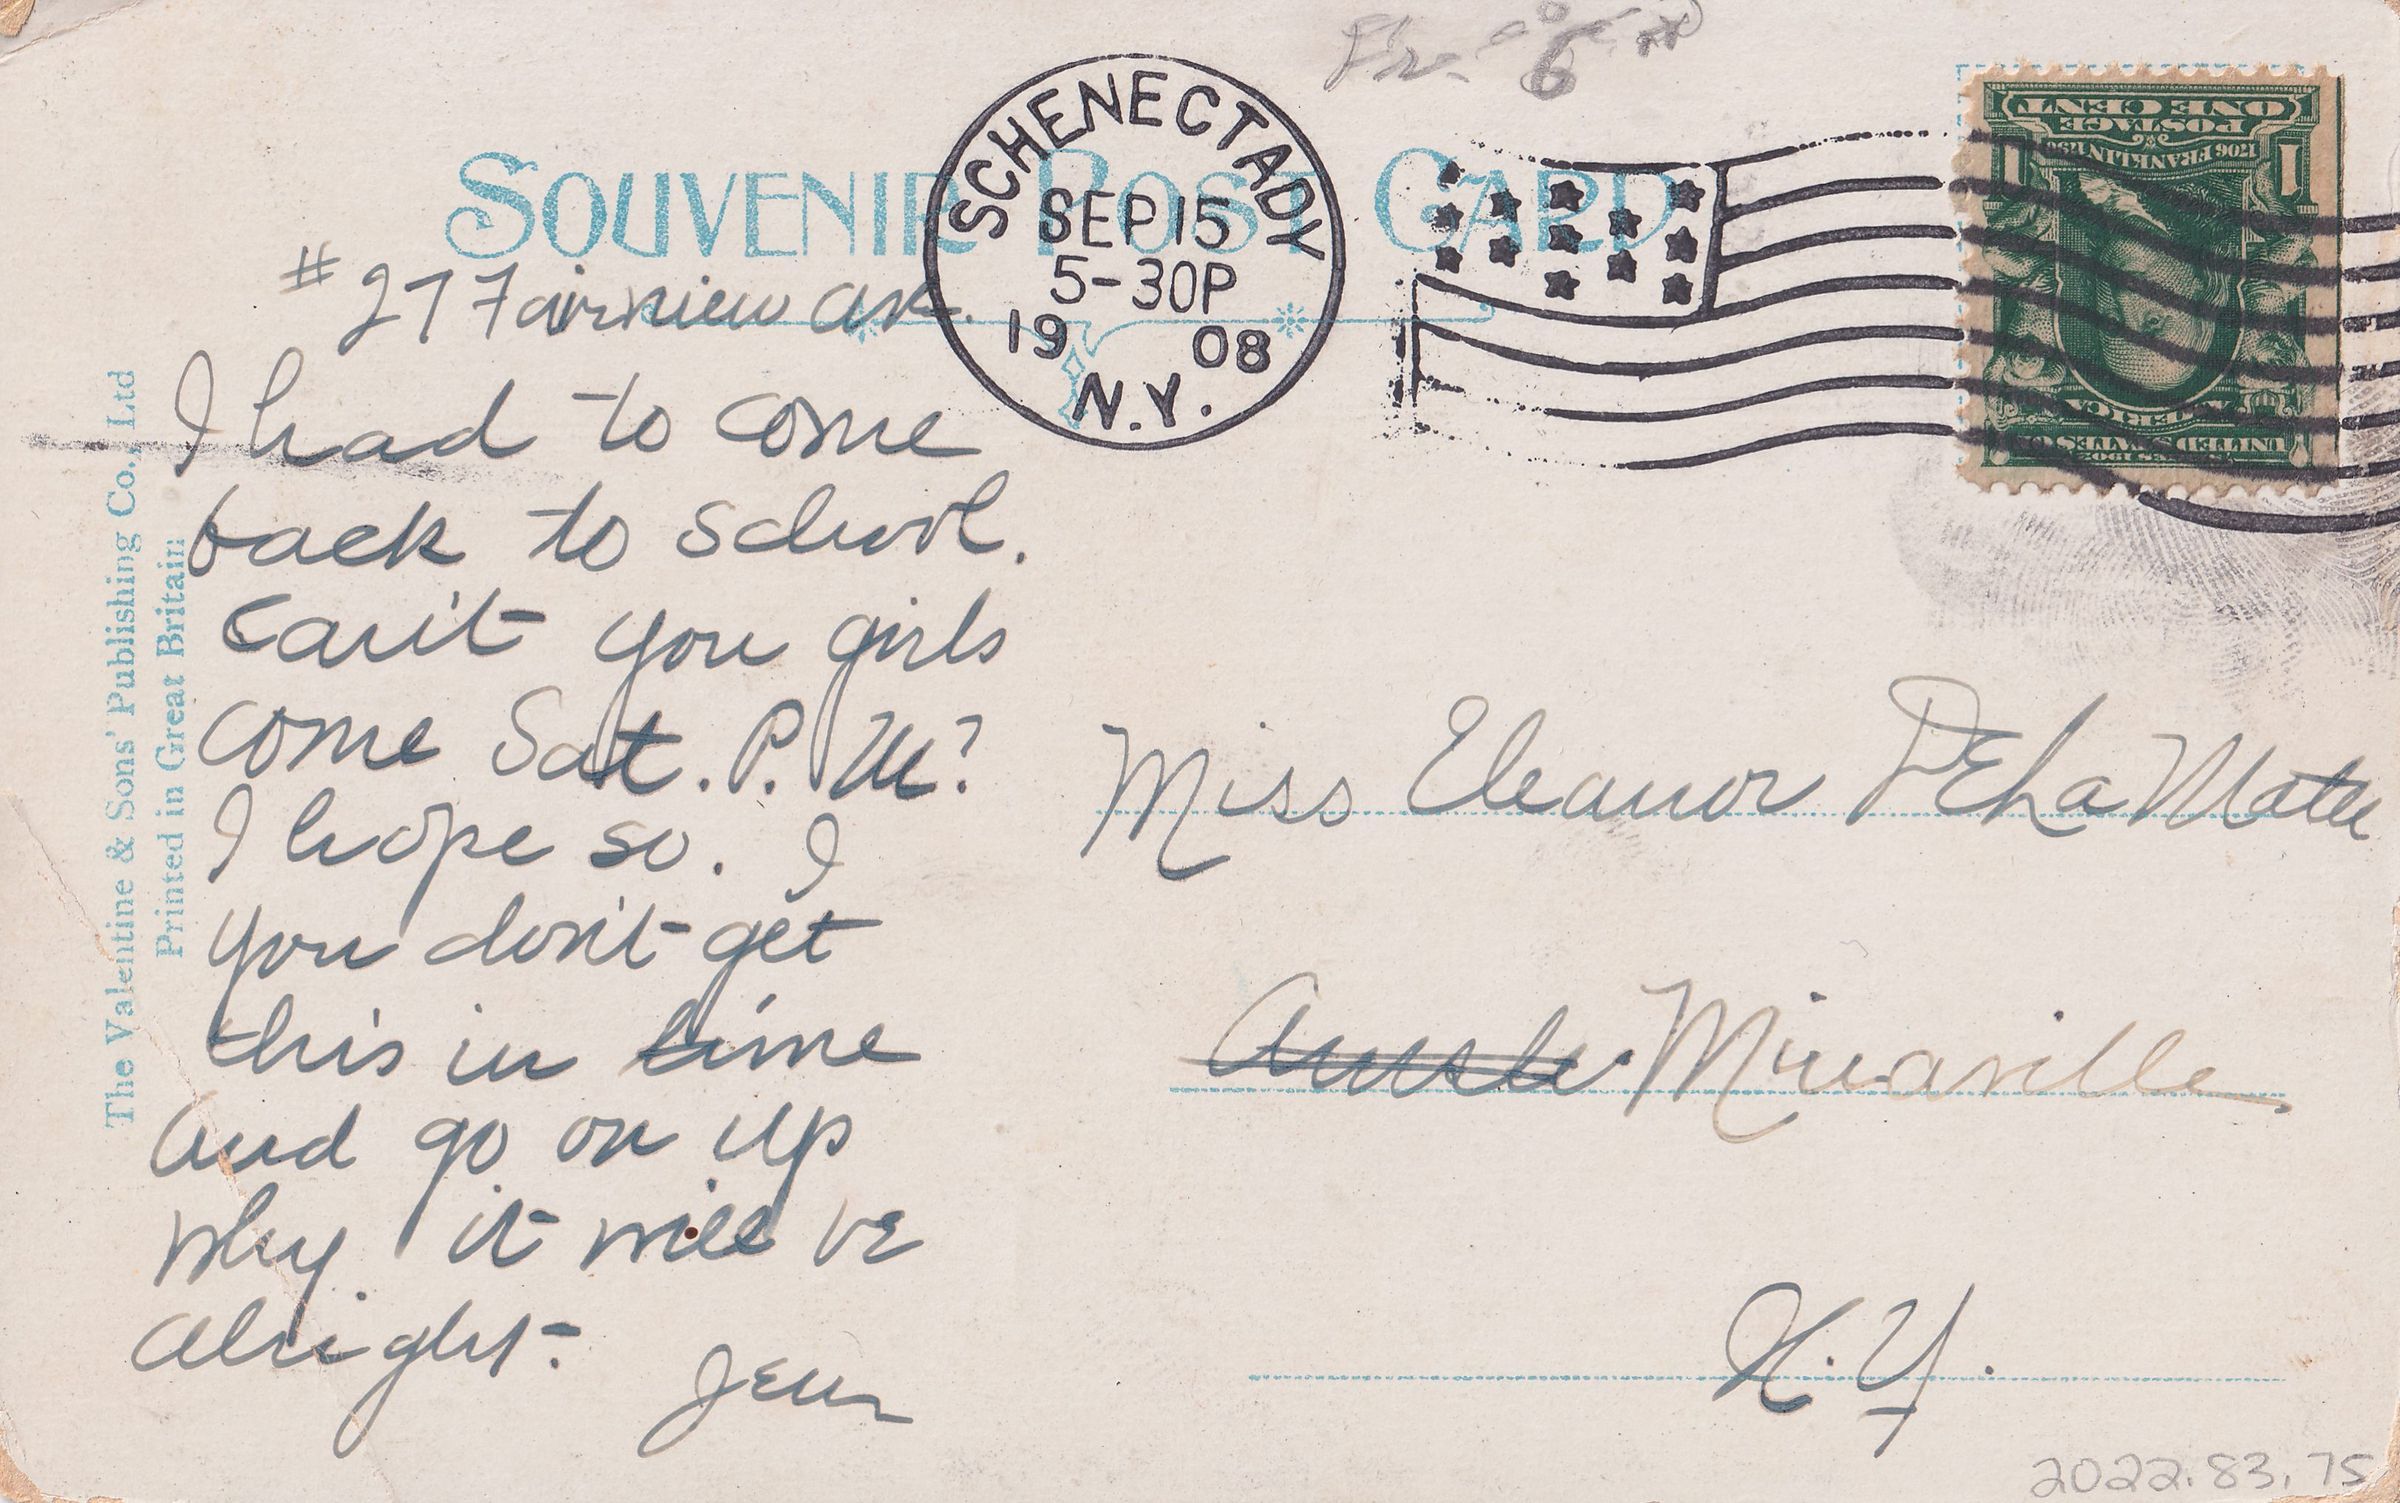 SOUVENIR POST CARD
SCHENECTADY
SEP 15
5-30P
19 08
N.Y.
ONE CENT
POSTAGE
1706 FRANKLIN 1790
1 1
UNITED STATES OF
AMERICA
SERIES 1902
# 27 Fairview Ave.
I had to come
back to school.
Can't you girls
come Sat. P. M?
I hope so. I
you don't get
this in time
and go on up
why it will be
alright.
Jen
The Valentine & Sons' Publishing Co., Ltd
Printed in Great Britain
Miss Eleanor DeLa Mater
Amste. Minaville
N.Y.
2022.83.75